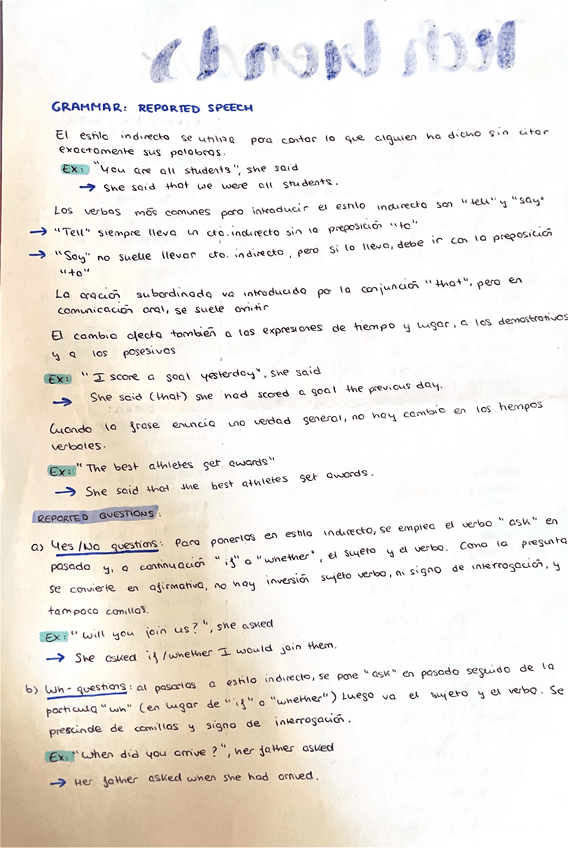 Tech trends
GRAMMAR: REPORTED SPEECH
El estilo indirecto se utiliza para contar lo que alguien ha dicho sin citar
exactamente sus palabras.
Ex: "You are all students", she said
→ She said that we were all students.
Los verbos más comunes para introducir el estilo indirecto son "tell" y "say"
→ "Tell" siempre lleva un cto. indirecto sin la preposición "to"
→ "Say" no suelle llevar cto. indirecto, pero si lo lleva, debe ir con la preposición
"to"
La oración subordinada va introducida por la conjunción "that", pero en
comunicación oral, se suele omitir
El cambio afecta también a las expresiones de tiempo y lugar, a los demostrativos
y a los posesivos
Ex: "I score a goal yesterday", she said
→ She said (that) she had scored a goal the previous day.
Cuando la frase enuncia una verdad general, no hay cambio en los tiempos
verbales.
Ex: "The best athletes get awards"
→ She said that the best athletes get awards.
REPORTED QUESTIONS:
a) Yes/No questions: Para ponerlos en estilo indirecto, se emplea el verbo "ask" en
pasado y, a continuación "if" o "whether", el sujeto y el verbo. Como la pregunta
se convierte en afirmativa, no hay inversión sujeto verbo, ni signo de interrogación, y
tampoco comillas.
Ex: "Will you join us?", she asked
→ She asked if/whether I would join them.
b) Wh-questions: al pasarlas a estilo indirecto, se pone "ask" en pasado seguido de la
particula "wh" (en lugar de "if" o "whether") Luego va el sujeto y el verbo. Se
prescinde de comillas y signo de interrogación.
Ex: "When did you arrive?", her father asked
→ Her father asked when she had arrived.